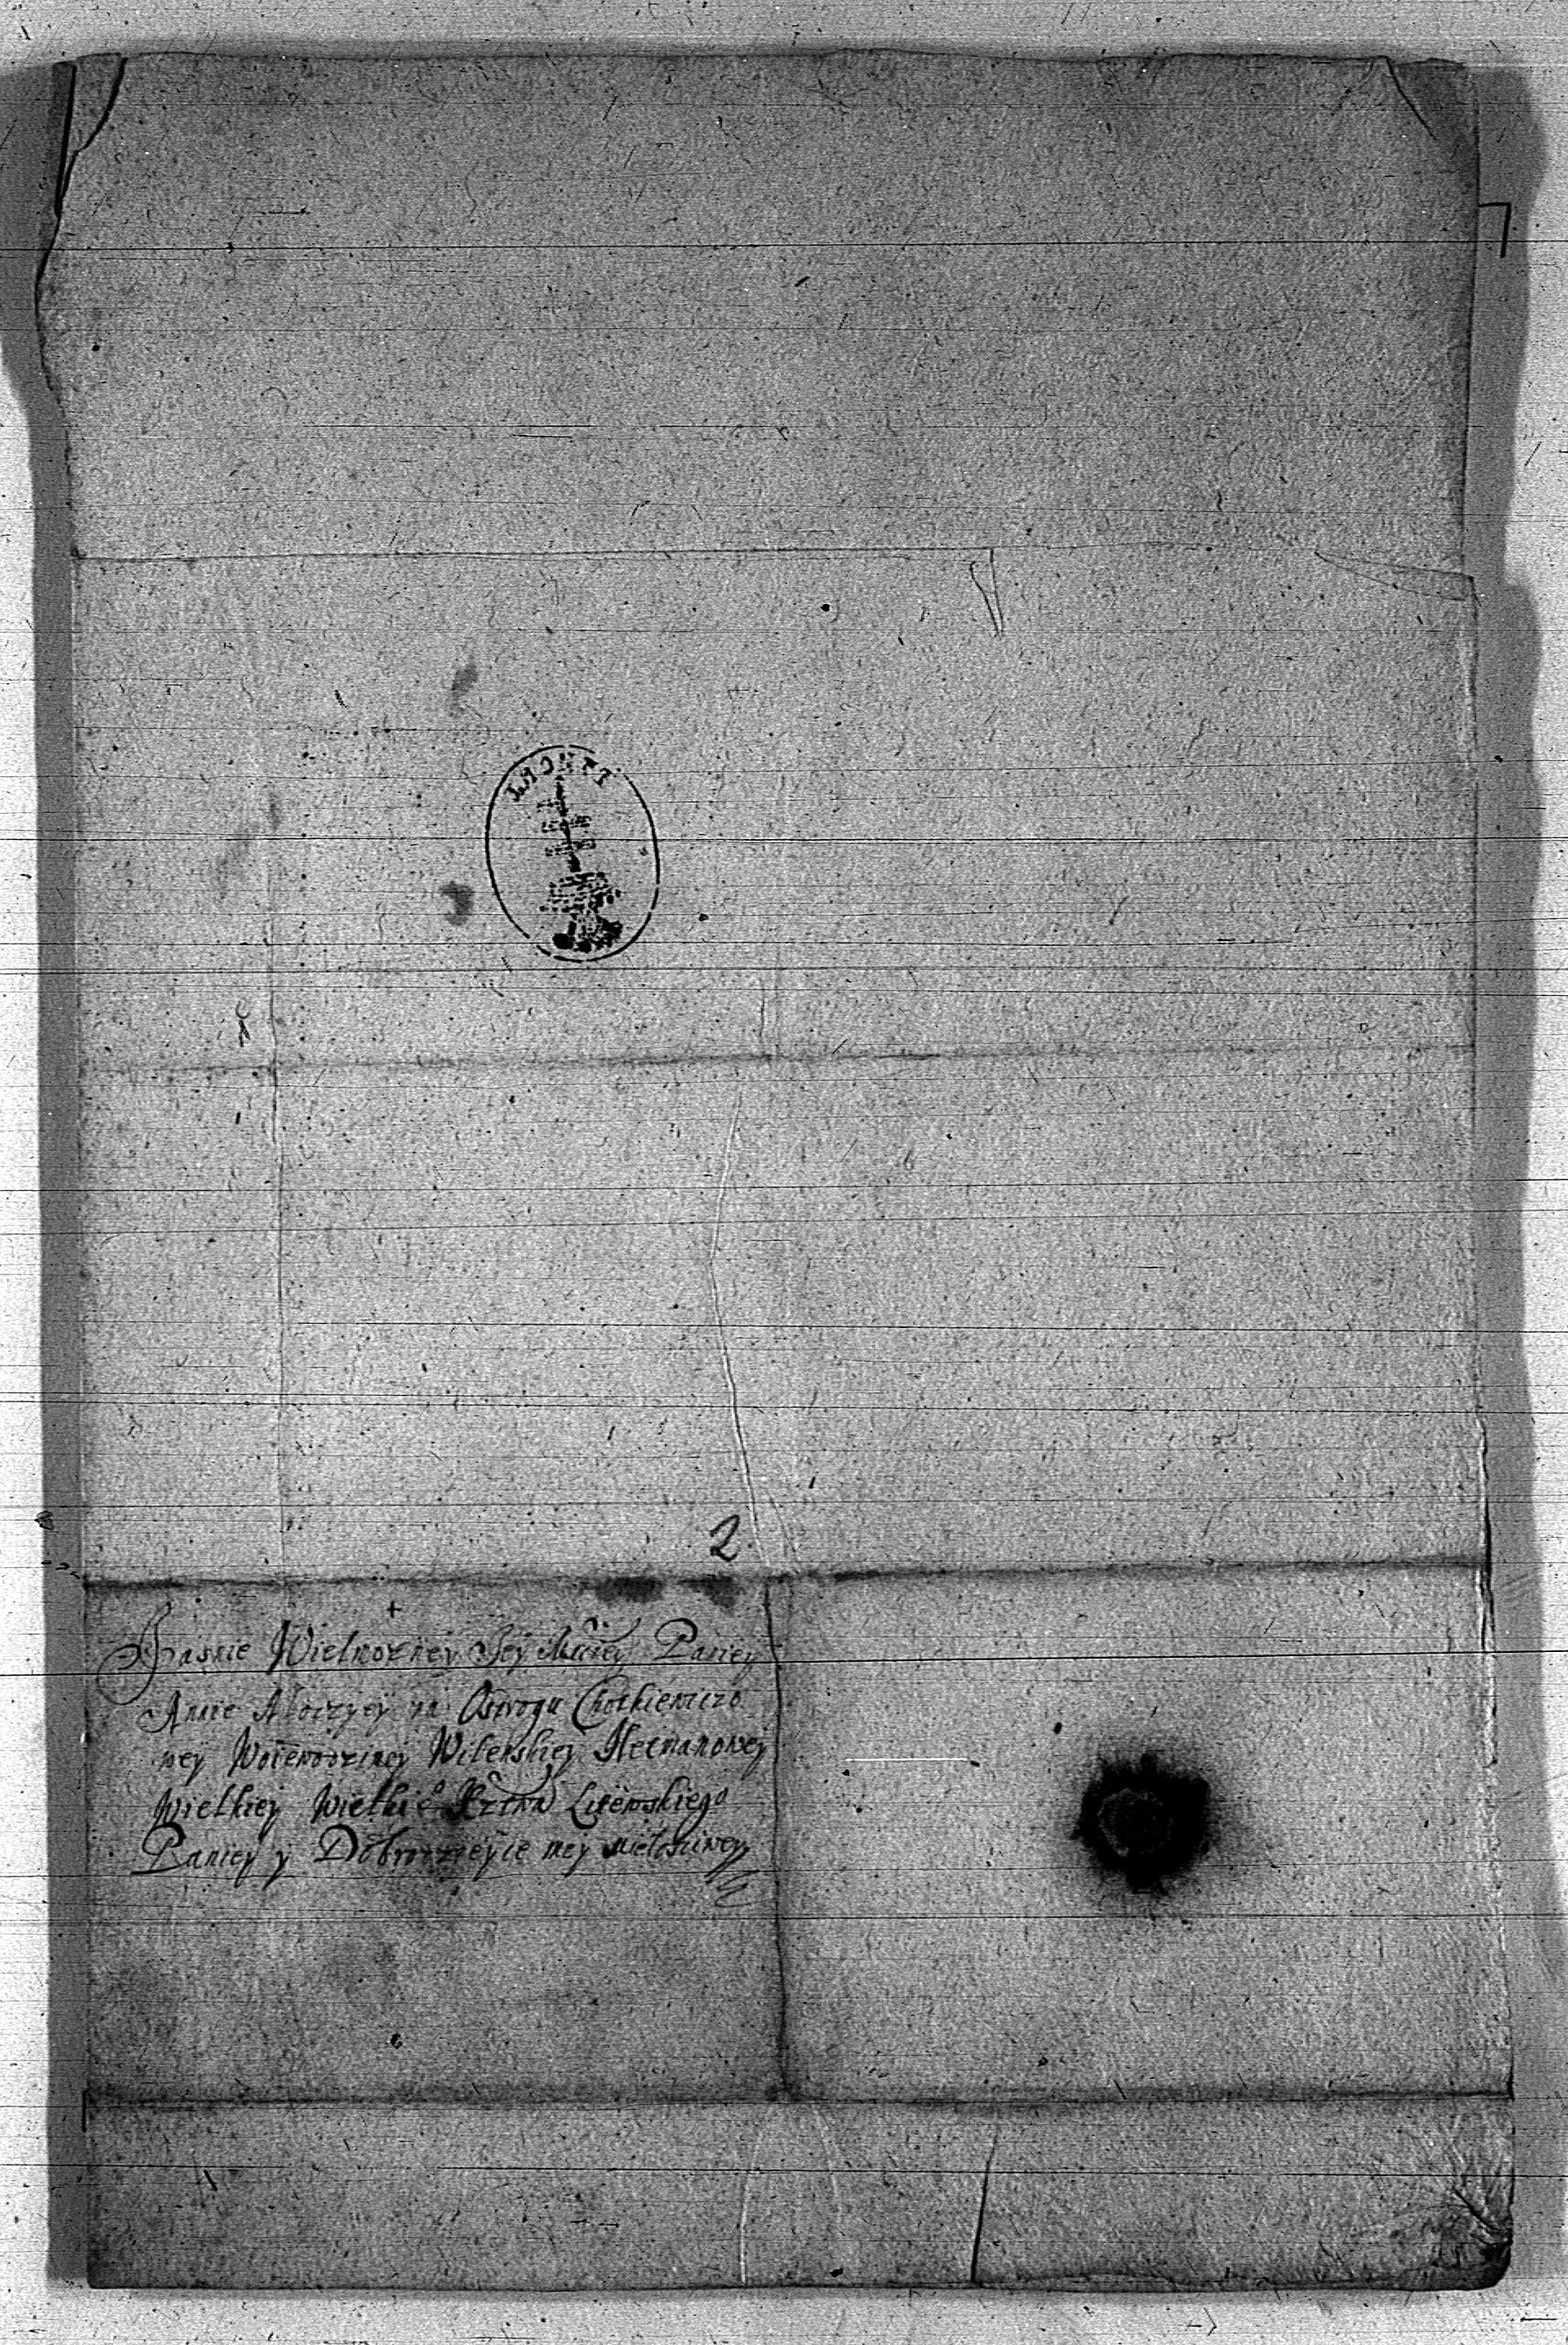 2
+
Jasnie Wielmozney Jey Mciey Paniey
Annie Aloizyey na Ostrogu Chotkiewiczo
wey Woiewodziney Wilenskiey Hetmanowey
Wielkiey Wielkie° Xztwa Litewskiego
Paniey y Dobrodzieyce mey miłosciwey